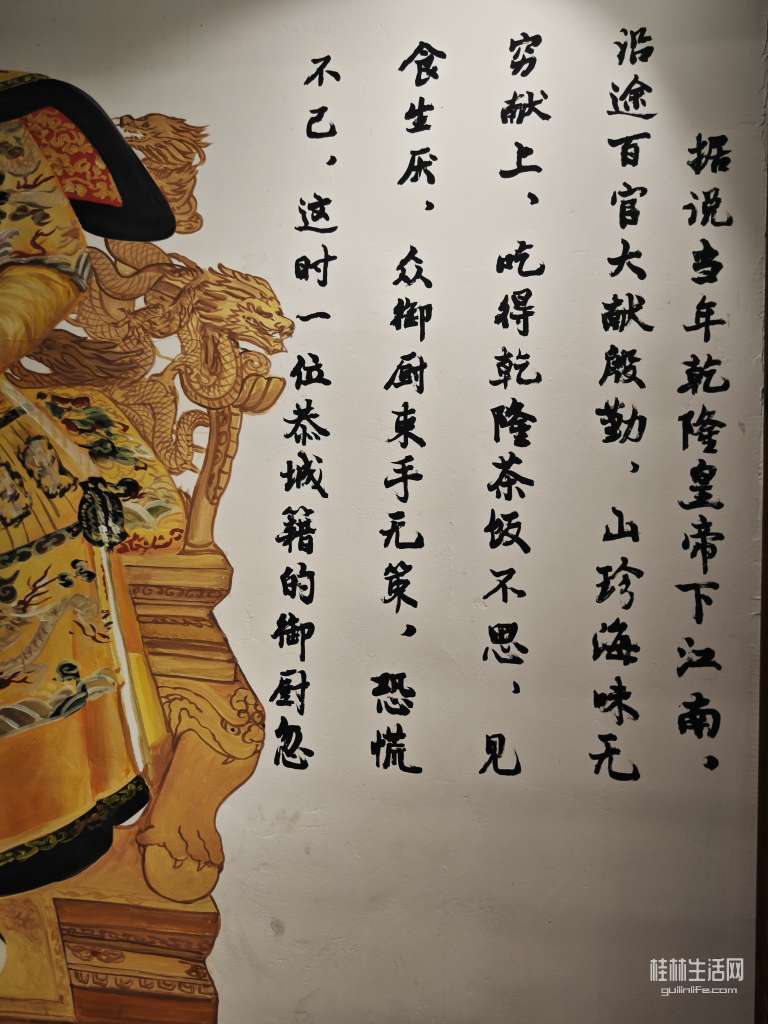 据说当年乾隆皇帝下江南，
沿途百官大献殷勤，山珍海味无
穷献上，吃得乾隆茶饭不思，见
食生厌，众御厨束手无策，恐慌
不已，这时一位恭城籍的御厨忽
桂林生活网
guilinlife.com